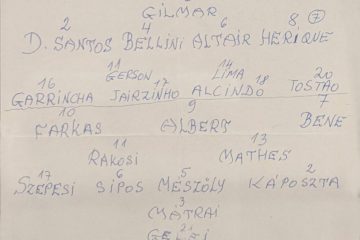 GILMAR
2 4 6 8 7
D. SANTOS BELLINI ALTAIR HERIQUE
11 14
GERSON LIMA
16 17 18 20
GARRINCHA JAIRZINHO ALCINDO TOSTÃO
10 9 7
FARKAS ALBERT BENE
11 13
RAKOSI MATHES
17 6 5 2
SZEPESI SIPOS MÉSZÖLY KÁPOSZTA
3
MÁTRAI
21
GELEI